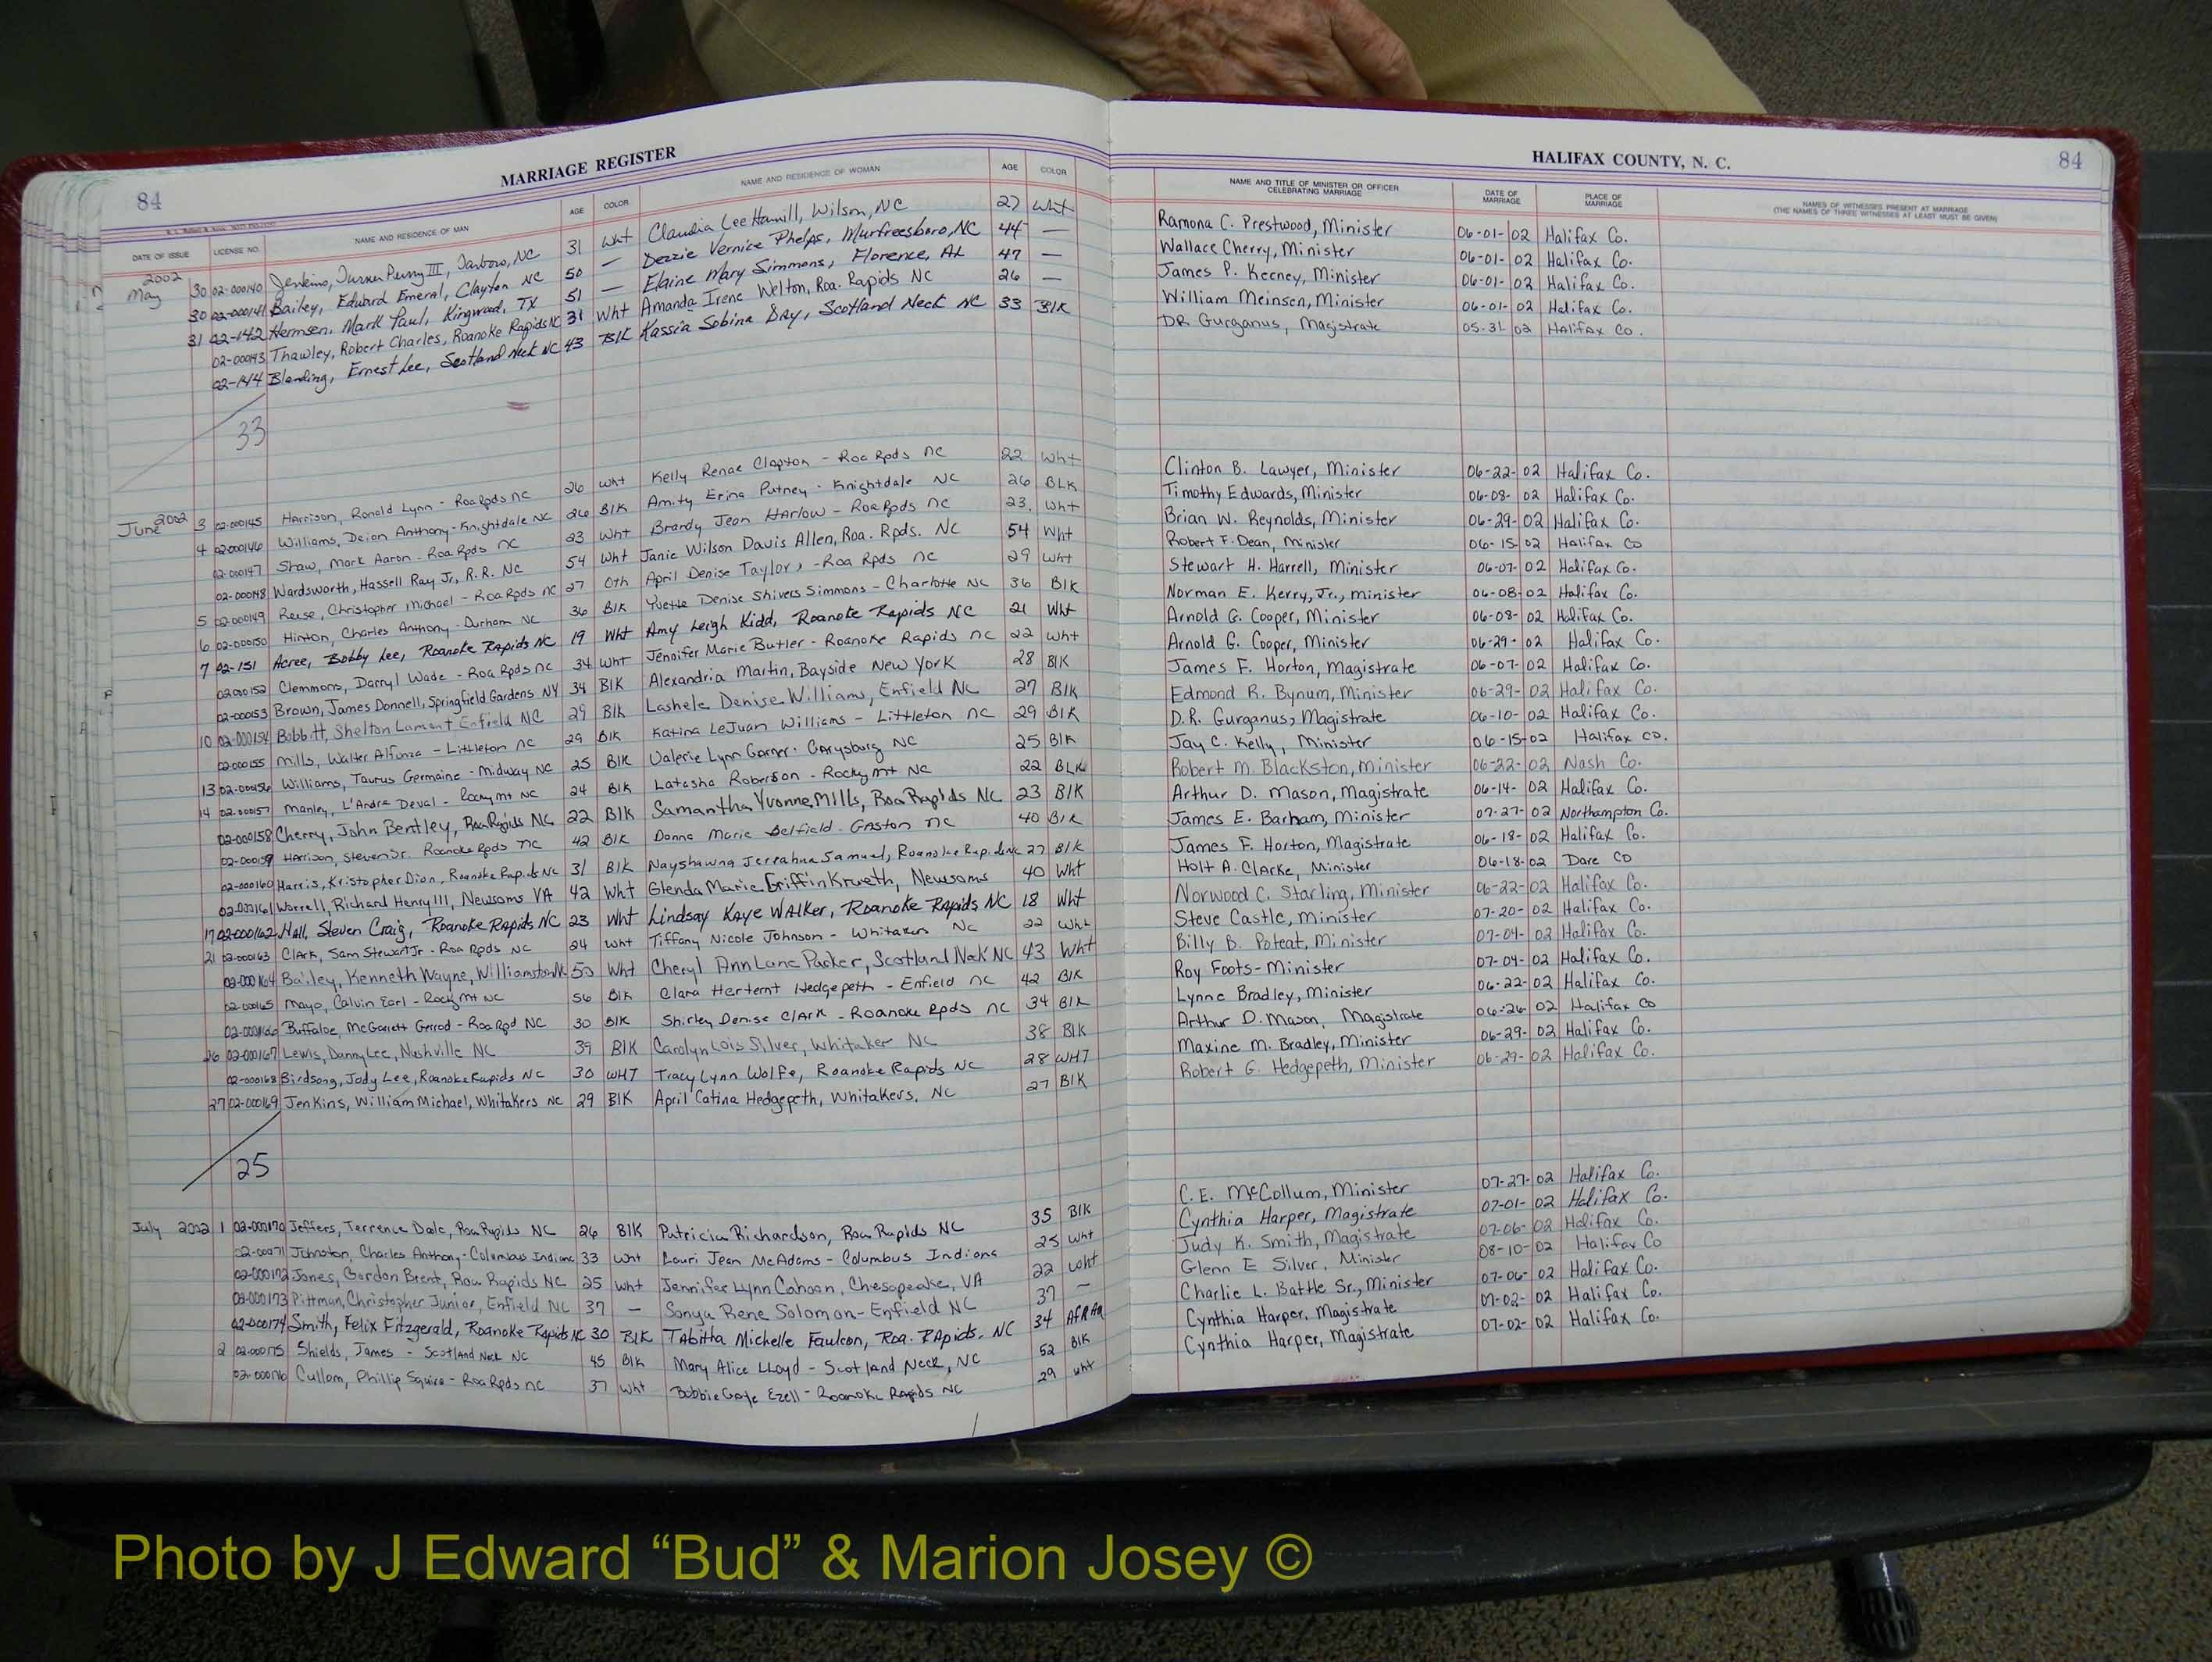 84 MARRIAGE REGISTER
DATE OF ISSUE LICENSE NO. NAME AND RESIDENCE OF MAN AGE COLOR NAME AND RESIDENCE OF WOMAN AGE COLOR
2002 May 30 02-000140 Jenkins, Turner Perry III, Tarboro, NC 31 Wht Claudia Lee Hamill, Wilson, NC 27 Wht
30 02-000141 Bailey, Edward Emeral, Clayton NC 50 — Dezzie Vernice Phelps, Murfreesboro, NC 44 —
31 02-142 Hermsen, Mark Paul, Kingwood, TX 51 — Elaine Mary Simmons, Florence, AL 47 —
02-000143 Thawley, Robert Charles, Roanoke Rapids NC 31 Wht Amanda Irene Welton, Roa. Rapids NC 26 —
02-144 Blanding, Ernest Lee, Scotland Neck NC 43 Blk Kassia Sobina Day, Scotland Neck NC 33 Blk
33
June 2002 3 02-000145 Harrison, Ronald Lynn - Roa Rpds NC 26 Wht Kelly Renae Clapton - Roa Rpds NC 22 Wht
4 02-000146 Williams, Deion Anthony - Knightdale NC 26 Blk Amity Erina Putney - Knightdale NC 26 BLK
02-000147 Shaw, Mark Aaron - Roa Rpds NC 23 Wht Brandy Jean Harlow - Roa Rpds NC 23 Wht
02-000148 Wardsworth, Hassell Ray Jr., R.R. NC 54 Wht Janie Wilson Davis Allen, Roa. Rpds. NC 54 Wht
5 02-000149 Reese, Christopher Michael - Roa Rpds NC 27 Oth April Denise Taylor, - Roa Rpds NC 29 Wht
6 02-000150 Hinton, Charles Anthony - Durham NC 36 Blk Yvette Denise Shivers Simmons - Charlotte NC 36 Blk
7 02-151 Acree, Bobby Lee, Roanoke Rapids NC 19 Wht Amy Leigh Kidd, Roanoke Rapids NC 21 Wht
02-000152 Clemmons, Darryl Wade - Roa Rpds NC 34 Wht Jennifer Marie Butler - Roanoke Rapids NC 22 Wht
02-000153 Brown, James Donnell, Springfield Gardens NY 34 Blk Alexandria Martin, Bayside New York 28 Blk
10 02-000154 Bobbitt, Shelton Lamont Enfield NC 29 Blk Lashele Denise Williams, Enfield NC 27 Blk
02-000155 Mills, Walter Alfonza - Littleton NC 29 Blk Katina LeJuan Williams - Littleton NC 29 Blk
13 02-000156 Williams, Taurus Germaine - Midway NC 25 Blk Valerie Lynn Garner - Garysburg NC 25 Blk
14 02-000157 Manley, L'Andre Deval - Rocky Mt NC 24 Blk Latasha Roberson - Rocky Mt NC 22 BLK
02-000158 Cherry, John Bentley, Roa Rapids NC 22 Blk Samantha Yvonne Mills, Roa Rapids NC 23 Blk
02-000159 Harrison, Steven Sr. Roanoke Rpds NC 42 Blk Donna Marie Belfield - Gaston NC 40 Blk
02-000160 Harris, Kristopher Dion, Roanoke Rapids NC 31 Blk Nayshawna Samuel, Roanoke Rapids NC 27 Blk
02-000161 Worrell, Richard Henry III, Newsoms VA 42 Wht Glenda Marie Griffin Krueth, Newsoms 40 Wht
17 02-000162 Hall, Steven Craig, Roanoke Rapids NC 23 Wht Lindsay Kaye Walker, Roanoke Rapids NC 18 Wht
21 02-000163 Clark, Sam Stewart Jr - Roa Rpds NC 24 Wht Tiffany Nicole Johnson - Whitakers NC 22 Wht
02-000164 Bailey, Kenneth Wayne, Williamston NC 50 Wht Cheryl Ann Lane Packer, Scotland Neck NC 43 Wht
02-000165 Mayo, Calvin Earl - Rocky Mt NC 56 Blk Clara Hedgepeth - Enfield NC 42 Blk
02-000166 Buffaloe, McGarrett Gerrod - Roa Rpd NC 30 Blk Shirley Denise Clark - Roanoke Rpds NC 34 Blk
26 02-000167 Lewis, Danny Lee, Nashville NC 39 Blk Carolyn Lois Silver, Whitaker NC 38 Blk
02-000168 Birdsong, Jody Lee, Roanoke Rapids NC 30 WHT Tracy Lynn Wolfe, Roanoke Rapids NC 28 WHT
27 02-000169 Jenkins, William Michael, Whitakers NC 29 Blk April Catina Hedgepeth, Whitakers, NC 27 Blk
25
July 2002 1 02-000170 Jeffers, Terrence Dale, Roa Rapids NC 26 Blk Patricia Richardson, Roa Rapids NC 35 Blk
02-00071 Johnston, Charles Anthony - Columbus Indiana 33 Wht Lauri Jean McAdams - Columbus Indiana 25 Wht
02-000172 Jones, Gordon Brent, Roa Rapids NC 25 Wht Jennifer Lynn Cahoon, Chesapeake, VA 22 Wht
02-000173 Pittman, Christopher Junior, Enfield NC 37 — Sonya Rene Solomon - Enfield NC 37 —
02-000174 Smith, Felix Fitzgerald, Roanoke Rapids NC 30 Blk Tabitha Michelle Faulcon, Roa. Rapids, NC 34 AFR AM
2 02-000175 Shields, James - Scotland Neck NC 45 Blk Mary Alice Lloyd - Scotland Neck, NC 52 Blk
02-000176 Cullom, Phillip Squire - Roa Rpds NC 37 Wht Bobbie Gaye Ezell - Roanoke Rapids NC 29 Wht
HALIFAX COUNTY, N. C. 84
NAME AND TITLE OF MINISTER OR OFFICER CELEBRATING MARRIAGE DATE OF MARRIAGE PLACE OF MARRIAGE NAMES OF WITNESSES PRESENT AT MARRIAGE (THE NAMES OF THREE WITNESSES AT LEAST MUST BE GIVEN)
Ramona C. Prestwood, Minister 06-01-02 Halifax Co.
Wallace Cherry, Minister 06-01-02 Halifax Co.
James P. Keeney, Minister 06-01-02 Halifax Co.
William Meinsen, Minister 06-01-02 Halifax Co.
DR Gurganus, Magistrate 05-31-02 Halifax Co.
Clinton B. Lawyer, Minister 06-22-02 Halifax Co.
Timothy Edwards, Minister 06-08-02 Halifax Co.
Brian W. Reynolds, Minister 06-29-02 Halifax Co.
Robert F. Dean, Minister 06-15-02 Halifax Co
Stewart H. Harrell, Minister 06-07-02 Halifax Co.
Norman E. Kerry, Jr., minister 06-08-02 Halifax Co.
Arnold G. Cooper, Minister 06-08-02 Halifax Co.
Arnold G. Cooper, Minister 06-29-02 Halifax Co.
James F. Horton, Magistrate 06-07-02 Halifax Co.
Edmond R. Bynum, Minister 06-29-02 Halifax Co.
D.R. Gurganus, Magistrate 06-10-02 Halifax Co.
Jay C. Kelly, Minister 06-15-02 Halifax Co.
Robert M. Blackston, Minister 06-22-02 Nash Co.
Arthur D. Mason, Magistrate 06-14-02 Halifax Co.
James E. Barham, Minister 07-27-02 Northampton Co.
James F. Horton, Magistrate 06-18-02 Halifax Co.
Holt A. Clarke, Minister 06-18-02 Dare Co
Norwood C. Starling, Minister 06-22-02 Halifax Co.
Steve Castle, Minister 07-20-02 Halifax Co.
Billy B. Poteat, Minister 07-04-02 Halifax Co.
Roy Foots - Minister 07-04-02 Halifax Co.
Lynne Bradley, Minister 06-22-02 Halifax Co.
Arthur D. Mason, Magistrate 06-26-02 Halifax Co
Maxine M. Bradley, Minister 06-29-02 Halifax Co.
Robert G. Hedgepeth, Minister 06-29-02 Halifax Co.
C. E. McCollum, Minister 07-27-02 Halifax Co.
Cynthia Harper, Magistrate 07-01-02 Halifax Co.
Judy K. Smith, Magistrate 07-06-02 Halifax Co.
Glenn E Silver, Minister 08-10-02 Halifax Co
Charlie L. Battle Sr., Minister 07-06-02 Halifax Co.
Cynthia Harper, Magistrate 07-02-02 Halifax Co.
Cynthia Harper, Magistrate 07-02-02 Halifax Co.
Photo by J Edward “Bud” & Marion Josey ©